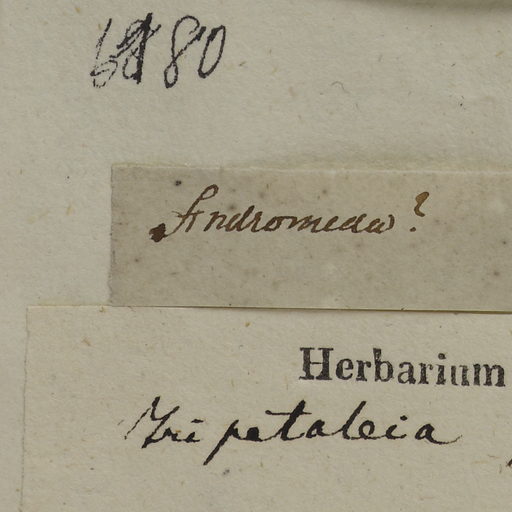 80
Andromeda?
Herbarium
Tripetaleia